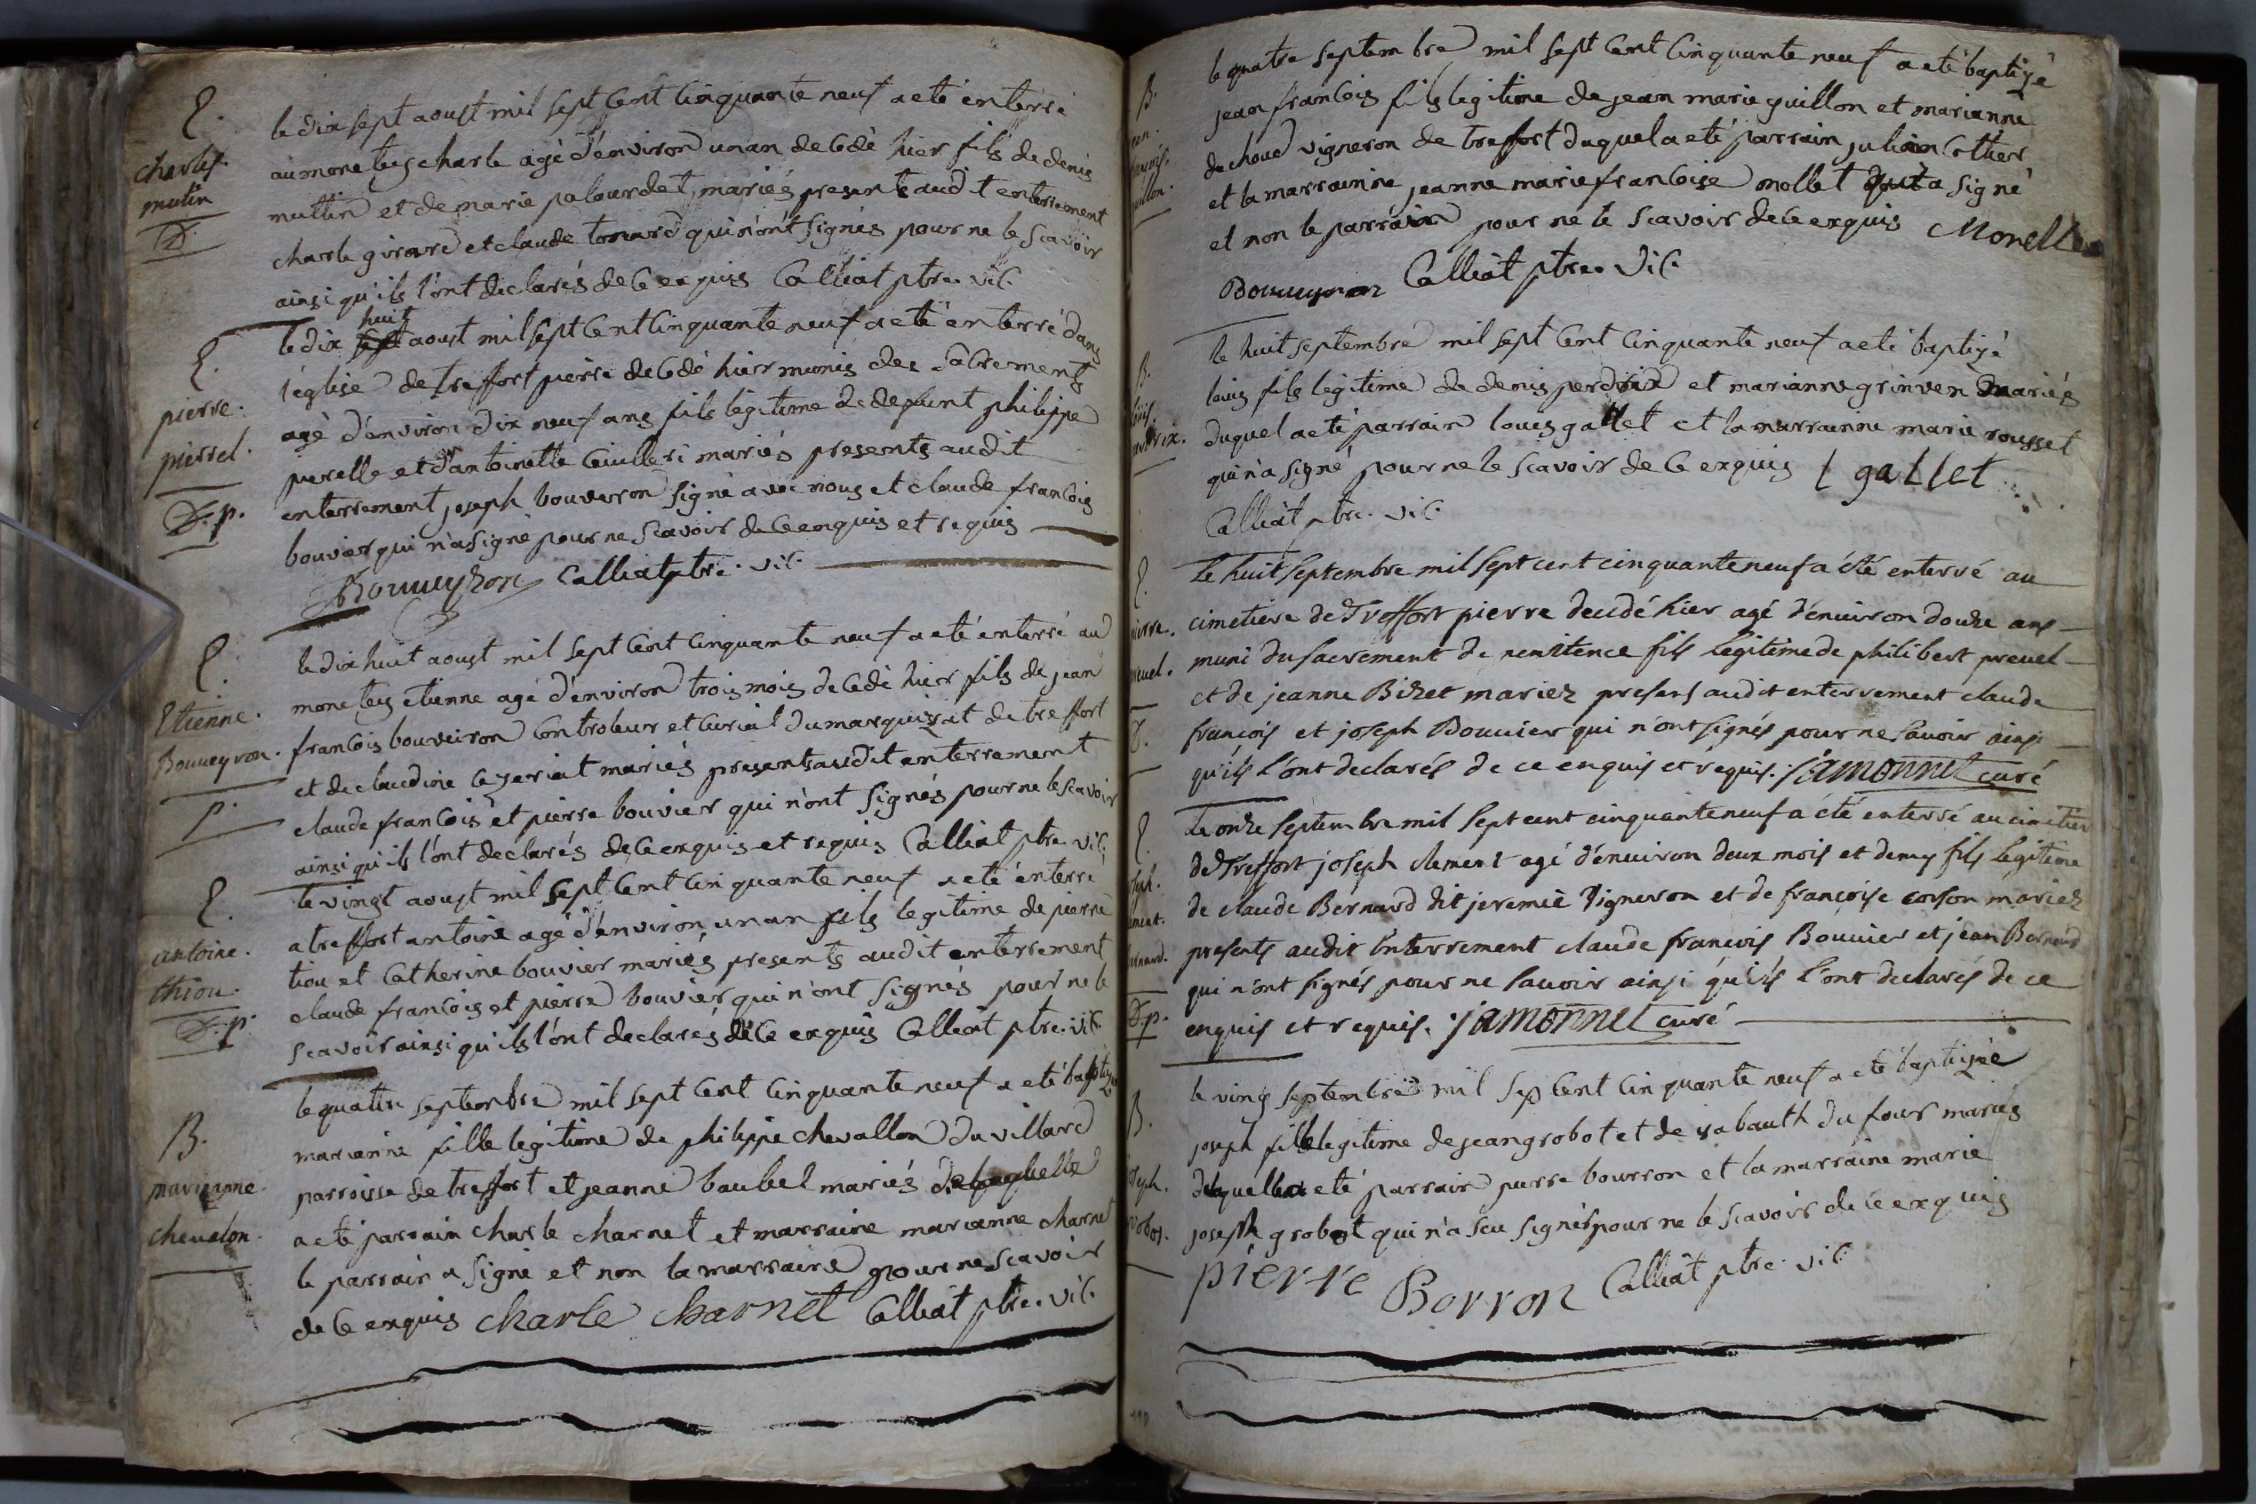 E.
charles
mutin
D
le dix sept aoust mil sept cent cinquante neuf a eté enterré
au monetay charle agé d'environ un an decedé hier fils de denis
muttin et de marie palourdet mariés presents audit enterrement
charle girard et claude tonard qui n'ont signés pour ne le scavoir
ainsi qu'ils l'ont declarés de ce enquis Calliat ptre. vic.
E.
pierre.
pierrel.
D. p.
le dix huit aoust mil sept cent cinquante neuf a eté enterré dans
l'église de treffort pierre decedé hier munis des sacrements
agé d'environ dix neuf ans fils legitime de defunt philippe
perelle et d'antoinette mariés presents audit
enterrement joseph bouveron signé avec nous et claude francois
bouvier qui n'a signé pour ne scavoir de ce enquis et requis
Bouveyron Calliat ptre. vic.
E.
Etienne.
Bouveyron.
p.
le dix huit aoust mil sept cent cinquante neuf a eté enterré au
monetay etienne agé d'environ trois mois decedé hier fils de jean
francois bouveiron controleur et curial du marquizat de treffort
et de claudine ceyzeriat mariés presents audit enterrement
claude francois et pierre bouvier qui n'ont signés pour ne le scavoir
ainsi qu'ils l'ont declarés de ce enquis et requis Calliat ptre. vic.
E.
antoine.
thiou.
D. p.
le vingt aoust mil sept cent cinquante neuf a eté enterré
a treffort antoine agé d'environ un an fils legitime de pierre
tiou et catherine bouvier mariés presents audit enterrement
claude francois et pierre bouvier qui n'ont signés pour ne le
scavoir ainsi qu'ils l'ont declarés de ce enquis Calliat ptre. vic.
B.
marianne.
chevalon.
le quatre septembre mil sept cent cinquante neuf a eté baptizée
marianne fille legitime de philippe chevallon du villard
parroisse de treffort et jeanne baubel mariés de laquelle
a eté parrain charle charnet et marraine marianne charnet
le parrain a signé et non la marraine pour ne scavoir
de ce enquis charle charnet Calliat ptre. vic.
B.
le quatre septembre mil sept cent cinquante neuf a eté baptizé
jean francois fils legitime de jean marie guillon et marianne
duchoud vigneron de treffort duquel a eté parrain julien
et la marrainne jeanne marie francoise mollet qui a signé
et non le parrain pour ne le scavoir de ce enquis
Calliat ptre. vic.
B.
le huit septembre mil sept cent cinquante neuf a eté baptizé
louis fils legitime de denis perdrix et marianne grinven mariés
duquel a eté parrain louis gallet et la marrainne marie rousset
qui n'a signé pour ne le scavoir de ce enquis l gallet
Calliat ptre. vic.
E.
pierre.
prevel.
D.
le huit septembre mil sept cent cinquante neuf a été enterré au
cimetiere de Treffort pierre decedé hier agé d'environ douze ans
muni du sacrement de penitence fils legitime de philibert prevel
et de jeanne Bizet mariez presens audit enterrement claude
francois et joseph Bouvier qui n'ont signés pour ne savoir ainsi
qu'ils l'ont declarés de ce enquis et requis. jamonnet curé
E.
D. p.
Le onze septembre mil sept cent cinquante neuf a été enterré au cimetier
de Treffort joseph clement agé d'environ deux mois et demy fils legitime
de claude Bernard dit jeremie vigneron et de francoise corson mariez
presents audit enterrement claude francois Bouvier et jean Bernard
qui n'ont signés pour ne savoir ainsi qu'ils l'ont declarés de ce
enquis et requis. jamonnet curé
B.
le vingt septembre mil sep cent cinquante neuf a eté baptizée
joseph fille legitime de jean grobot et de isabauth du four mariés
de laquelle a eté parrain pierre bourron et la marraine marie
joseph grobot qui n'a sceu signer pour ne le scavoir de ce enquis
pierre Borron Calliat ptre. vic.